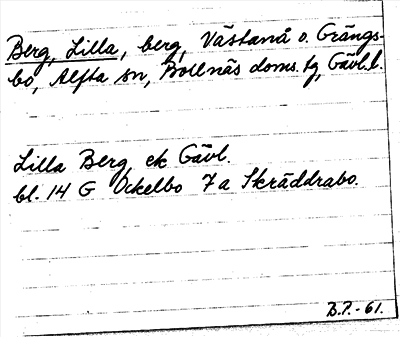 Berg, Lilla, berg, Västanå o. Grängs-
bo, Alfta sn, Bollnäs doms. tg, Gävl. l.
Lilla Berg ek Gävl.
bl. 14 G Ockelbo 7 a Skräddrabo.
B.P. -61.